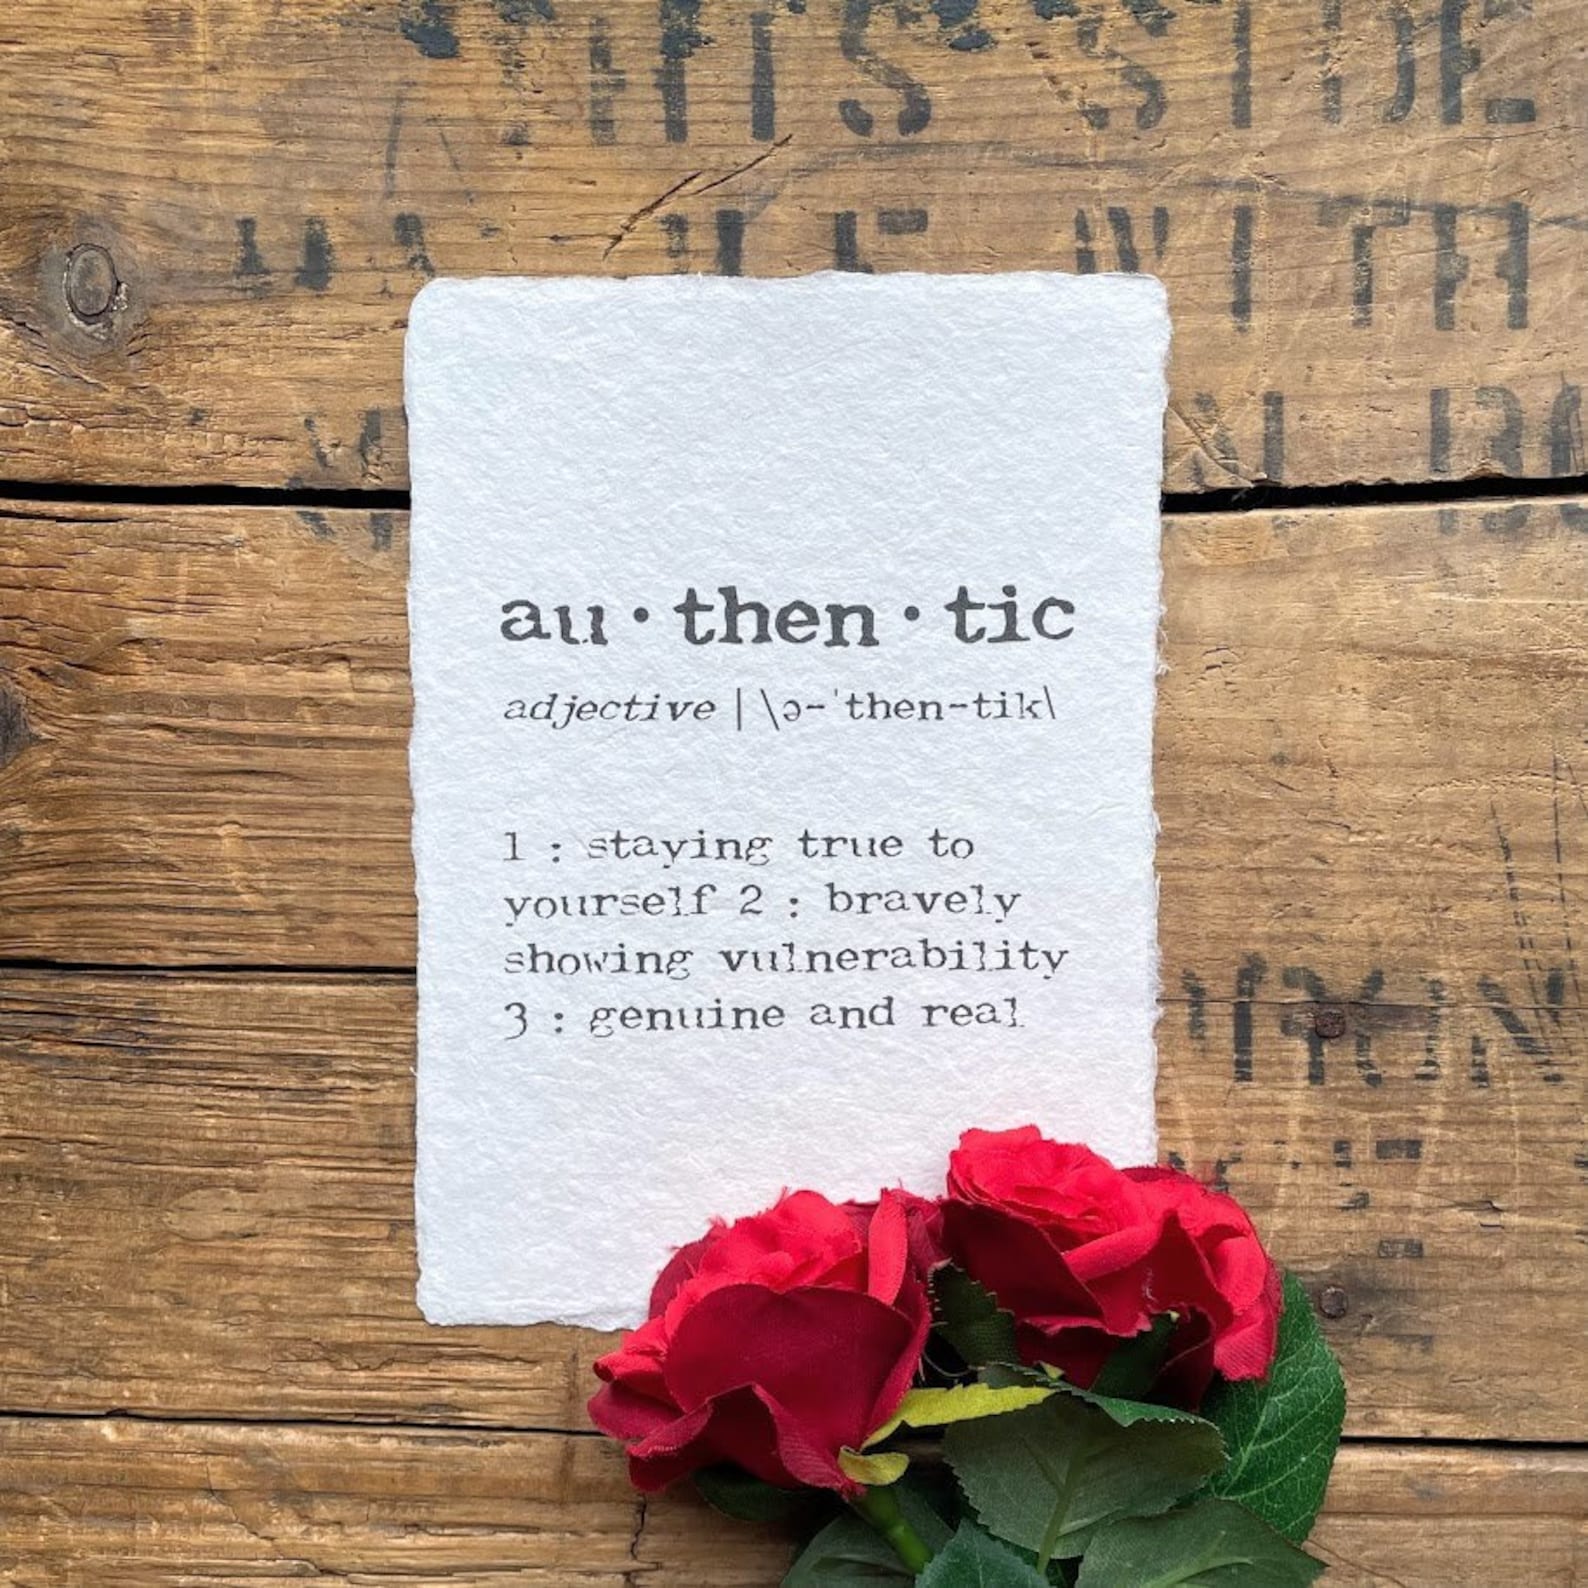 THIS SIDE
WITH
au·then·tic
adjective | \ə-ˈthen-tik\
1 : staying true to
yourself 2 : bravely
showing vulnerability
3 : genuine and real